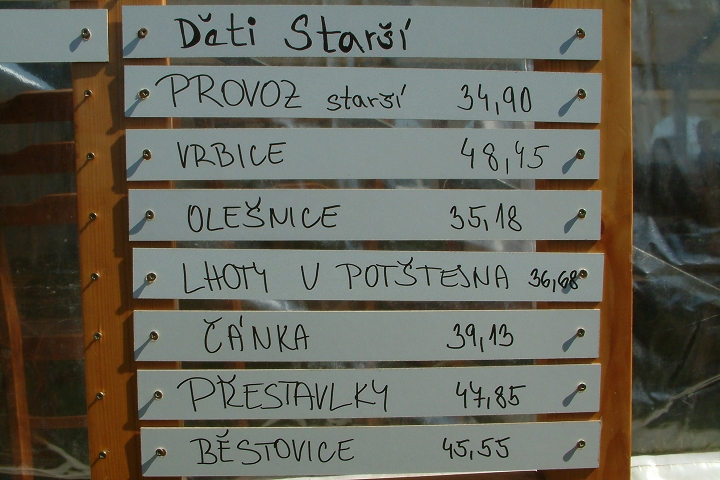 Děti Starší
PROVOZ starší 34,90
VRBICE 48,45
OLEŠNICE 35,18
LHOTY U POTŠTEJNA 36,68
ČÁNKA 39,13
PŘESTAVLKY 47,85
BĚSTOVICE 45,55